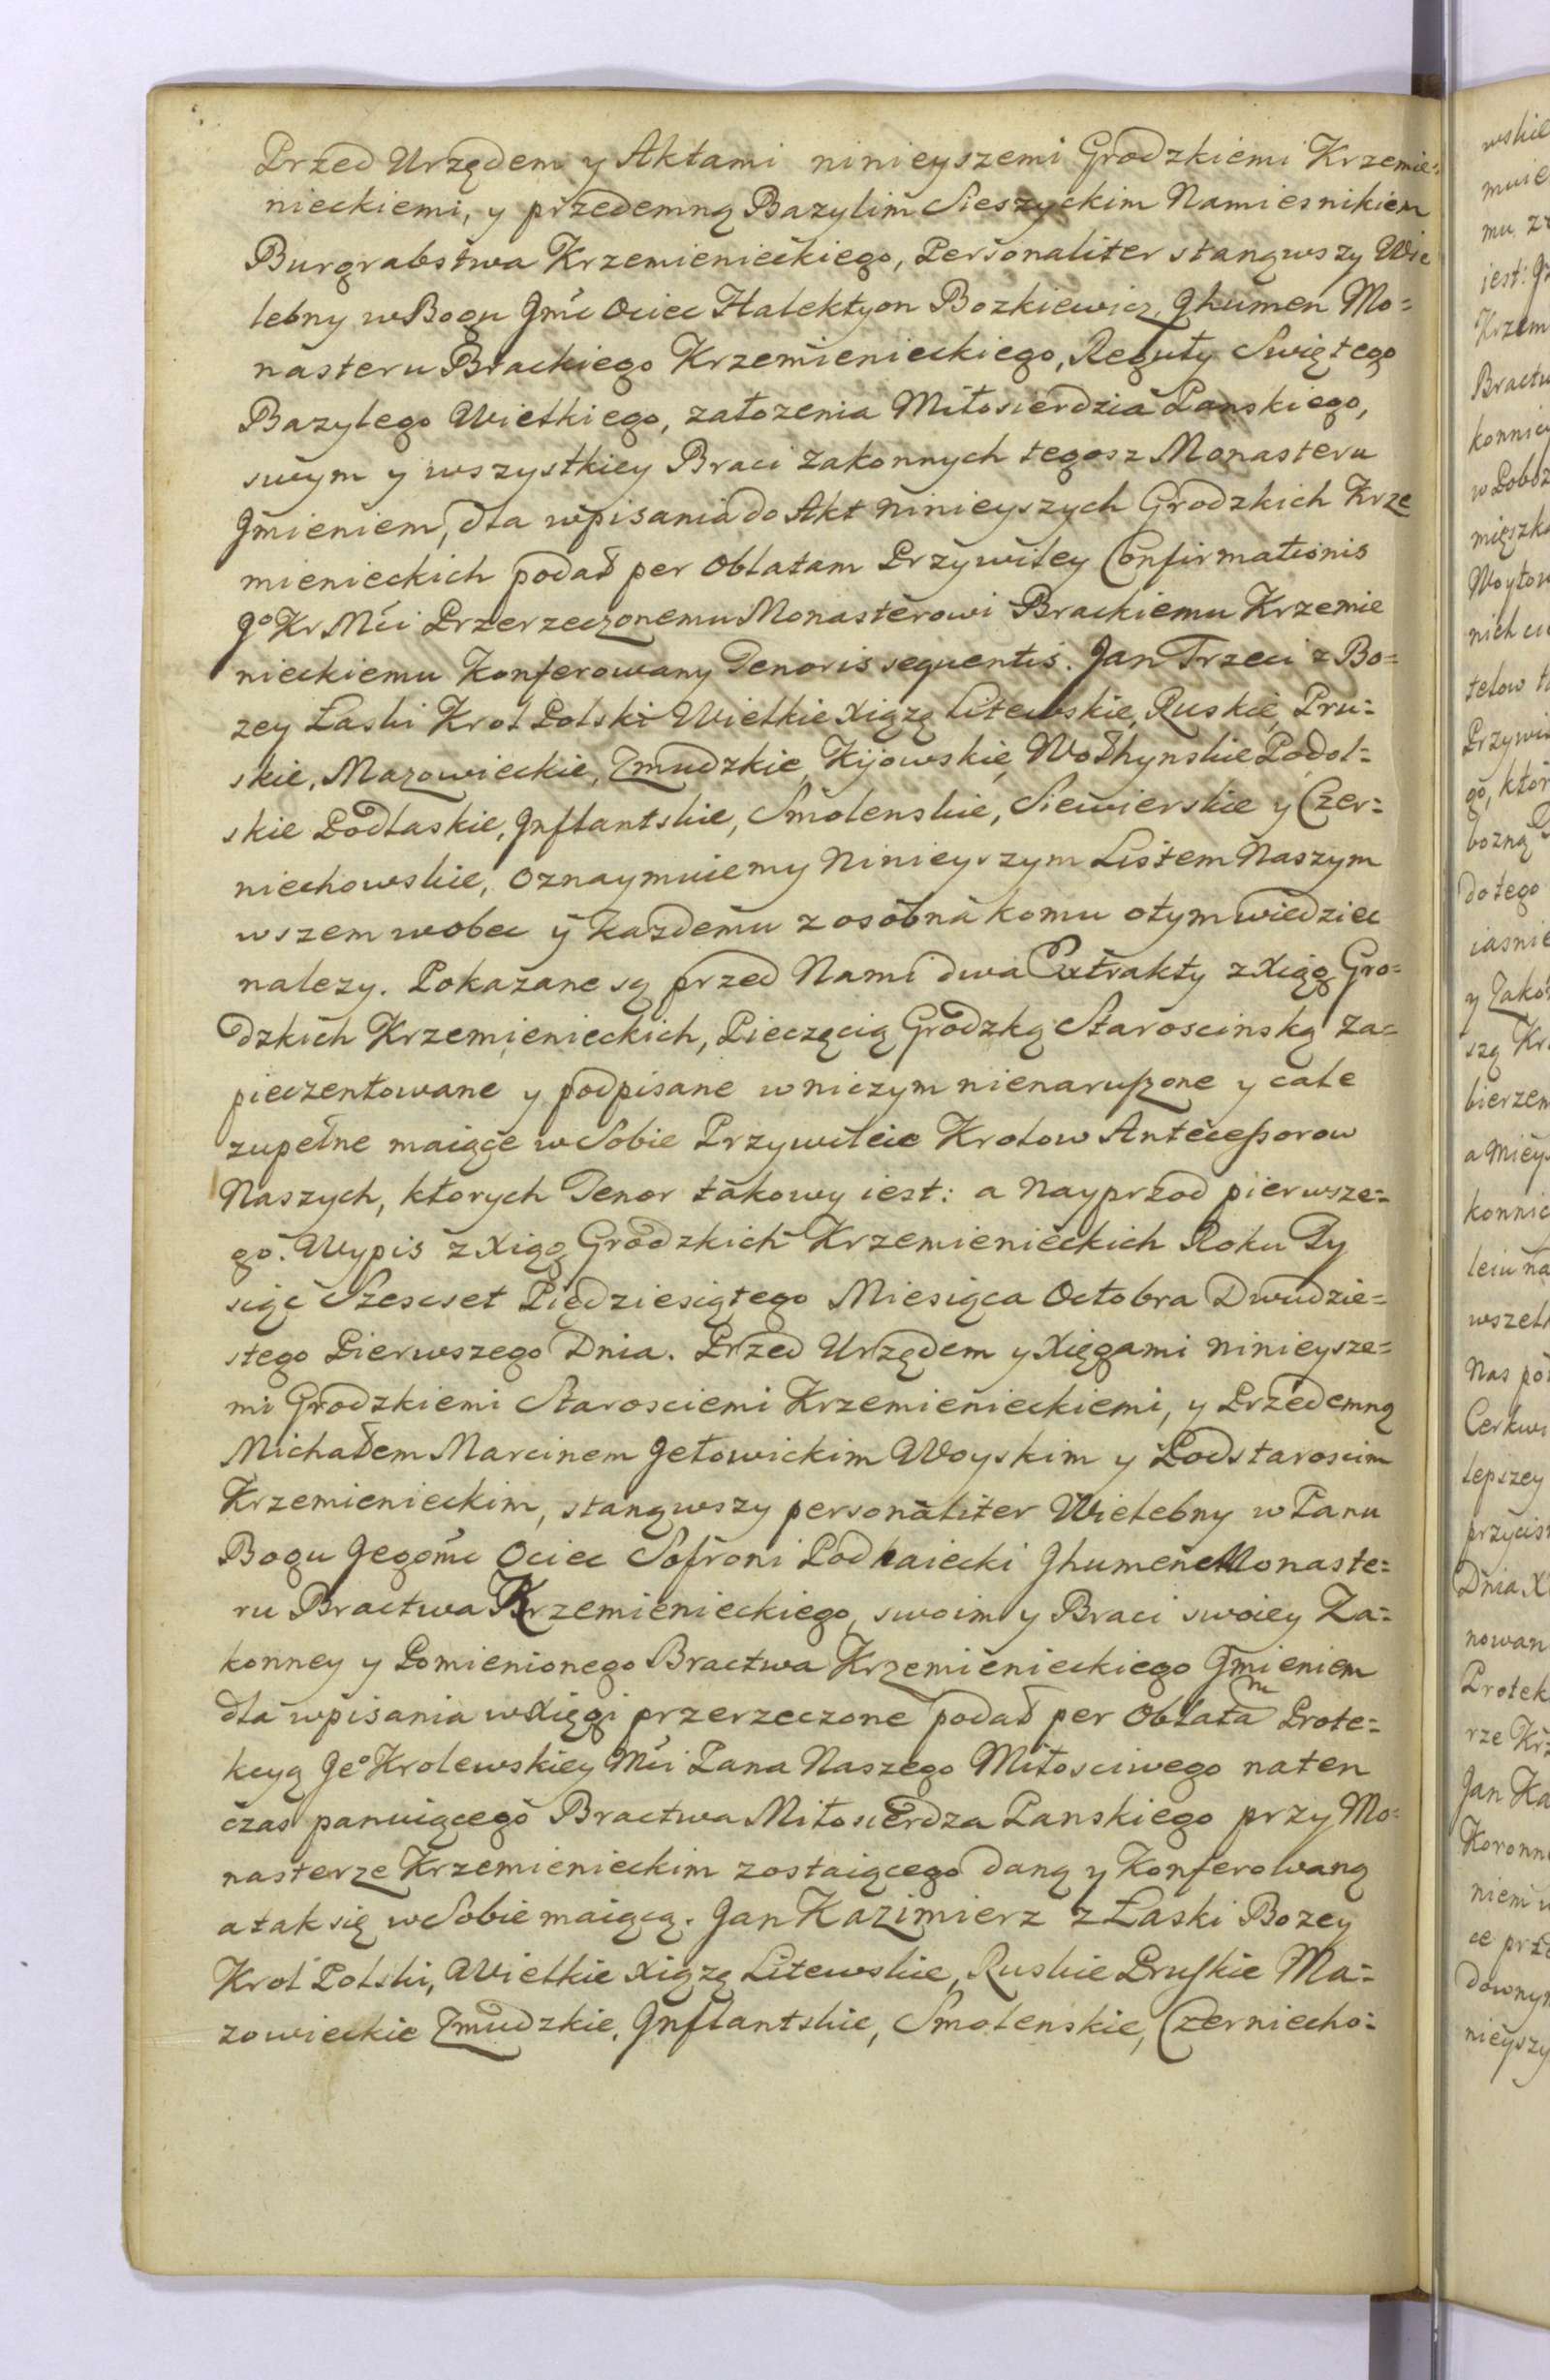 Przed Urzędem y Aktami ninieyszemi Grodzkiemi Krzemie=
nieckiemi, y przedemną Bazylim Sieszyckim Namiesnikiem
Burgrabstwa Krzemienieckiego, Personaliter stanąwszy Wie
lebny w Bogu Jmć Ociec Halektyon Bozkiewicz, Jhumen Mo=
nasteru Brackiego Krzemienieckiego, Reguły Swiętego
Bazylego Wielkiego, załozenia Miłosierdzia Panskiego,
swym y wszystkiey Braci Zakonnych tegosz Monasteru
Jmieniem, dla wpisania do Akt Ninieyszych Grodzkich Krze
mienieckich podał per Oblatam Przywiley Confirmationis
Jo Kr Mći Przerzeczonemu Monasterowi Brackiemu Krzemie
nieckiemu Konferowany Tenoris sequentis. Jan Trzeci z Bo=
zey Łaski Krol Polski Wielkie Xiązę Litewskie, Ruskie, Pru=
skie, Mazowieckie, Zmudzkie, Kijowskie, Wołhynskie Podol=
skie Podlaskie, Jnflantskie, Smolenskie, Siewierskie y Czer=
niechowskie, Oznaymuiemy Ninieyszym Listem Naszym
wszem wobec y kazdemu zosobna komu otym wiedziec
nalezy. Pokazane są przed Nami dwa Extrakty z Xiąg Gro=
dzkich Krzemienieckich, Pieczęcią Grodzką Staroscinską za=
pieczentowane y podpisane wniczym nienaruszone y cale
zupełne maiące w Sobie Przywileie Krolow Antecessorow
Naszych, ktorych Tenor takowy iest: a Nayprzod pierwsze=
go. Wypis z Xiąg Grodzkich Krzemienieckich Roku Ty
siąc Szescset Piędziesiątego Miesiąca Octobra Dwudzie=
stego Pierwszego Dnia. Przed Urzędem y Xięgami Ninieysze=
mi Grodzkiemi Starosciemi Krzemienieckiemi, y Przedemną
Michałem Marcinem Jełowickim Woyskim y Podstaroscim
Krzemienieckim, stanąwszy personaliter Wielebny w Panu
Bogu Jegomć Ociec Sofroni Podhaiecki Jhumen Monaste=
ru Bractwa Krzemienieckiego, swoim y Braci swoiey Za=
konney y Pomienionego Bractwa Krzemienieckiego Jmieniem
dla wpisania w Xięgi przerzeczone podał per Oblatam Prote=
kcyą Jeo Krolewskiey Mći Pana Naszego Miłosciwego naten
czas panuiącego Bractwa Miłosierdza Panskiego przy Mo=
nasterze Krzemienieckim zostaiącego daną y Konferowaną
atak się w Sobie maiącą. Jan Kazimierz z Łaski Bozey
Krol Polski, Wielkie Xiązę Litewskie, Ruskie Pruskie Ma=
zowieckie Zmudzkie, Jnflantskie, Smolenskie, Czerniecho=